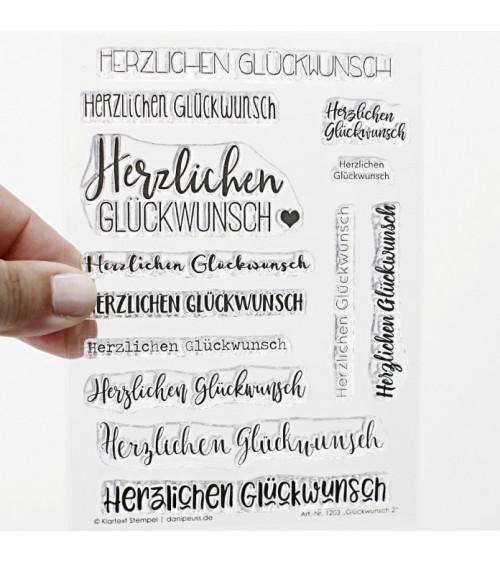 HERZLICHEN GLÜCKWUNSCH
HERZLICHEN GLÜCKWUNSCH
Herzlichen
Glückwunsch
Herzlichen
GLÜCKWUNSCH
Herzlichen
Glückwunsch
Herzlichen Glückwunsch
ERZLICHEN GLÜCKWUNSCH
Herzlichen Glückwunsch
Herzlichen Glückwunsch
Herzlichen Glückwunsch
Herzlichen Glückwunsch
Herzlichen Glückwunsch
Herzlichen Glückwunsch
© Klartext Stempel | danipeuss.de
Art.-Nr. 1203 „Glückwunsch 2"